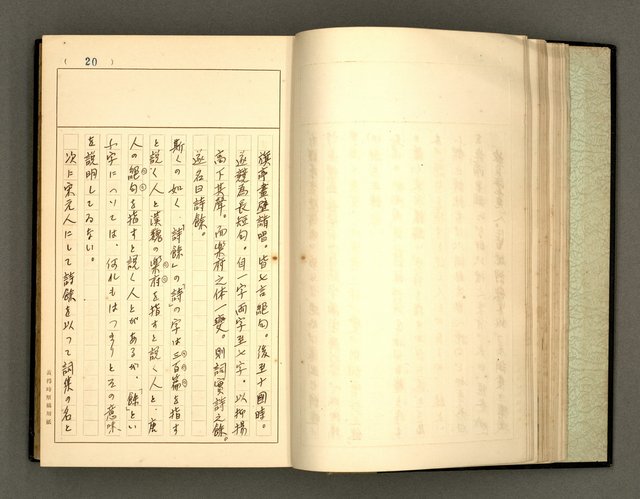 ( 20 )
旗亭畫壁諸唱。皆七言絕句。後至十國時。
遂競為長短句。自一字兩字至七字。以抑揚
高下其聲。而樂府之体一變。則詞實詩之餘。
遂名曰詩餘。
斯くの如く、「詩餘」の「詩」の字は三百篇を指す
と説く人と漢魏の樂府を指すと説く人と、唐
人の絕句を指すと説く人とがあるが、「餘」とい
ふ字については、何れもはつきりとその意味
を説明してゐない。
次に宋元人にして詩餘を以つて詞集の名と
黃得時原稿用紙